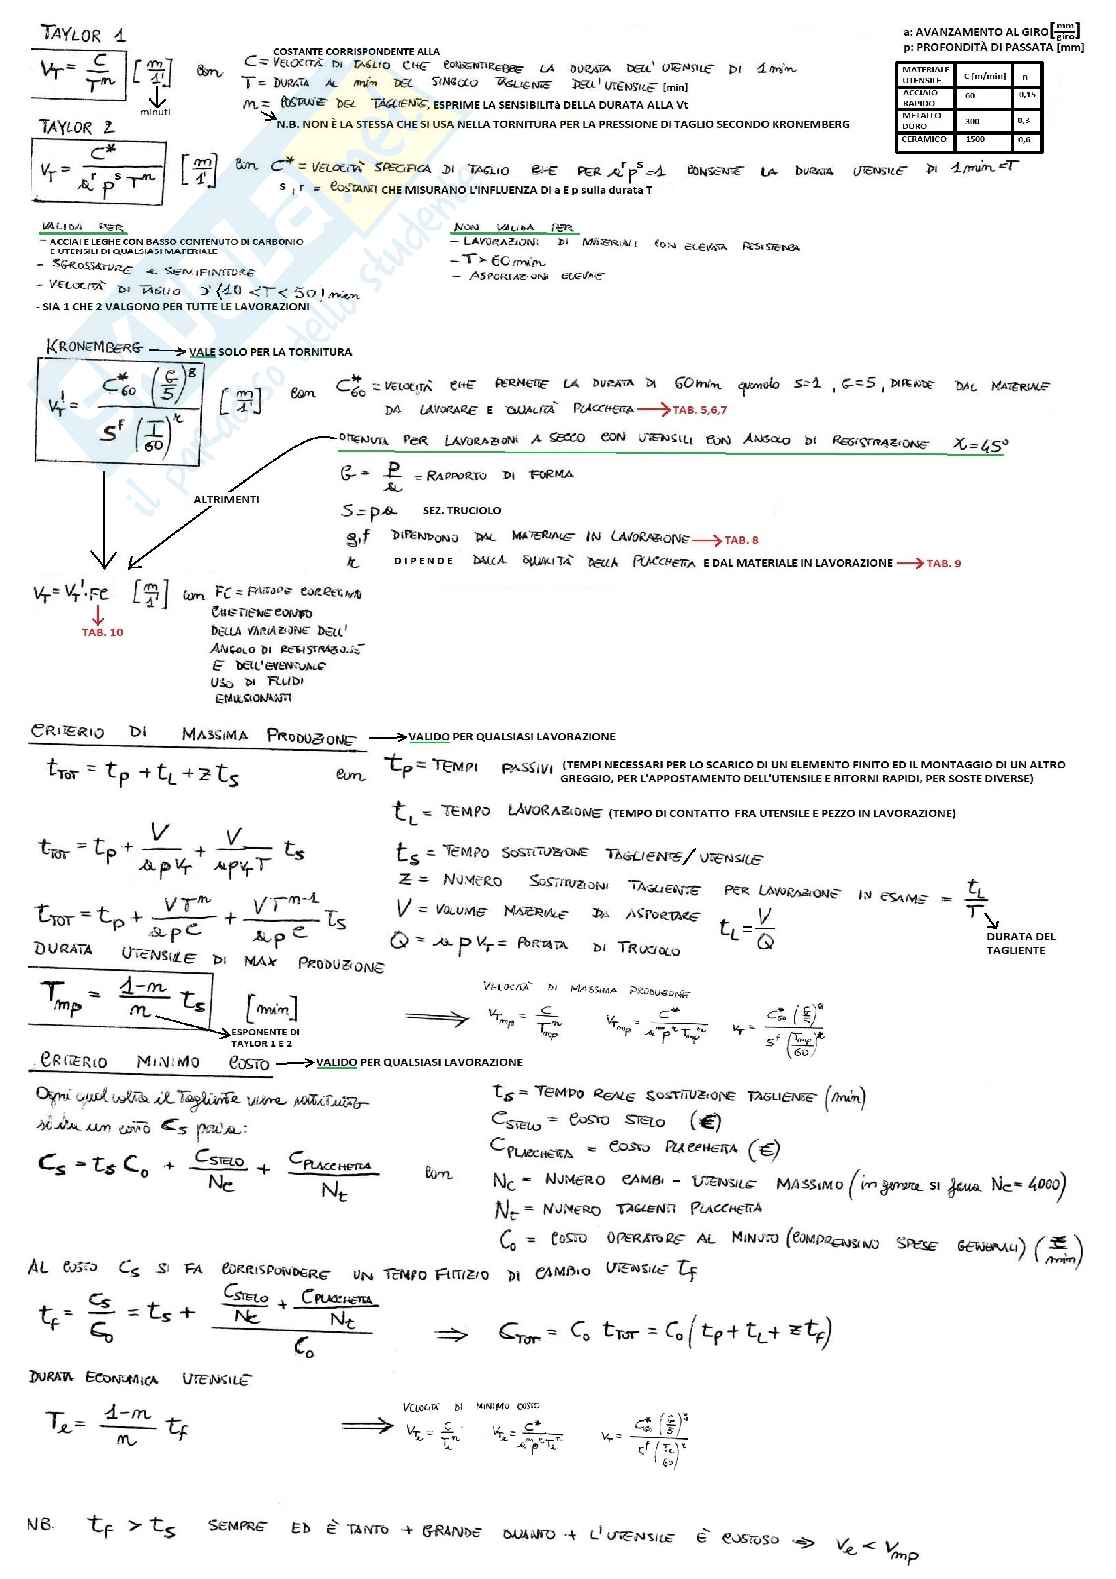 TAYLOR 1
a: AVANZAMENTO AL GIRO [mm/giro]
p: PROFONDITÀ DI PASSATA [mm]
V_T = C / T^n [m/1'] con
minuti
COSTANTE CORRISPONDENTE ALLA
C = VELOCITÀ DI TAGLIO CHE CONSENTIREBBE LA DURATA DELL'UTENSILE DI 1 min
T = DURATA AL min DEL SINGOLO TAGLIENTE DELL'UTENSILE [min]
n = COSTANTE DEL TAGLIENTE, ESPRIME LA SENSIBILITà DELLA DURATA ALLA Vt
N.B. NON È LA STESSA CHE SI USA NELLA TORNITURA PER LA PRESSIONE DI TAGLIO SECONDO KRONEMBERG
MATERIALE UTENSILE C [m/min] n
ACCIAIO RAPIDO 60 0,15
METALLO DURO 300 0,3
CERAMICO 1500 0,6
TAYLOR 2
V_T = C* / (a^r p^s T^n) [m/1'] con C* = VELOCITÀ SPECIFICA DI TAGLIO CHE PER a^r p^s = 1 CONSENTE LA DURATA UTENSILE DI 1 min = T
s , r = COSTANTI CHE MISURANO L'INFLUENZA DI a E p sulla durata T
VALIDA PER
- ACCIAI E LEGHE CON BASSO CONTENUTO DI CARBONIO
E UTENSILI DI QUALSIASI MATERIALE
- SGROSSATURE e SEMIFINITURE
- VELOCITÀ DI TAGLIO (10 < T < 50) min
- SIA 1 CHE 2 VALGONO PER TUTTE LE LAVORAZIONI
NON VALIDA PER
- LAVORAZIONI DI MATERIALI CON ELEVATA RESISTENZA
- T > 60 min
- ASPORTAZIONI ELEVATE
KRONEMBERG → VALE SOLO PER LA TORNITURA
V_T' = C*_60 (G/5)^g / (S^f (T/60)^k) [m/1'] con C*_60 = VELOCITÀ CHE PERMETTE LA DURATA DI 60 min quando S=1, G=5, DIPENDE DAL MATERIALE
DA LAVORARE E QUALITÀ PLACCHETTA → TAB. 5,6,7
OTTENUTA PER LAVORAZIONI A SECCO CON UTENSILI CON ANGOLO DI REGISTRAZIONE χ = 45°
ALTRIMENTI
G = p/a = RAPPORTO DI FORMA
S = p a SEZ. TRUCIOLO
g,f DIPENDONO DAL MATERIALE IN LAVORAZIONE → TAB. 8
k DIPENDE DALLA QUALITÀ DELLA PLACCHETTA E DAL MATERIALE IN LAVORAZIONE → TAB. 9
V_T = V_T' · FC [m/1'] con FC = FATTORE CORREZIONE
CHE TIENE CONTO
DELLA VARIAZIONE DELL'
ANGOLO DI REGISTRAZIONE
E DELL'EVENTUALE
USO DI FLUIDI
EMULSIONANTI
TAB. 10
CRITERIO DI MASSIMA PRODUZIONE → VALIDO PER QUALSIASI LAVORAZIONE
t_TOT = t_p + t_L + z t_s con t_p = TEMPI PASSIVI (TEMPI NECESSARI PER LO SCARICO DI UN ELEMENTO FINITO ED IL MONTAGGIO DI UN ALTRO
GREGGIO, PER L'APPOSTAMENTO DELL'UTENSILE E RITORNI RAPIDI, PER SOSTE DIVERSE)
t_L = TEMPO LAVORAZIONE (TEMPO DI CONTATTO FRA UTENSILE E PEZZO IN LAVORAZIONE)
t_TOT = t_p + V/(a p V_T) + V/(a p V_T T) t_s
t_s = TEMPO SOSTITUZIONE TAGLIENTE/UTENSILE
z = NUMERO SOSTITUZIONI TAGLIENTE PER LAVORAZIONE IN ESAME = t_L/T
DURATA DEL
TAGLIENTE
t_TOT = t_p + V T^n/(a p C) + V T^(n-1)/(a p C) t_s
V = VOLUME MATERIALE DA ASPORTARE t_L = V/Q
Q = a p V_T = PORTATA DI TRUCIOLO
DURATA UTENSILE DI MAX PRODUZIONE
T_mp = (1-n)/n t_s [min]
ESPONENTE DI
TAYLOR 1 E 2
VELOCITÀ DI MASSIMA PRODUZIONE
⇒ V_Tmp = C/T_mp^n V_Tmp = C*/(a^m p^r T_mp^n) V_T = C*_60 (G/5)^g / (S^f (T_mp/60)^k)
CRITERIO MINIMO COSTO → VALIDO PER QUALSIASI LAVORAZIONE
Ogni qual volta il tagliente viene sostituito
si ha un costo C_s pari a:
C_s = t_s C_o + C_STELO/N_c + C_PLACCHETTA/N_t con
t_s = TEMPO REALE SOSTITUZIONE TAGLIENTE (min)
C_STELO = COSTO STELO (€)
C_PLACCHETTA = COSTO PLACCHETTA (€)
N_c = NUMERO CAMBI - UTENSILE MASSIMO (in genere si fissa N_c = 4000)
N_t = NUMERO TAGLIENTI PLACCHETTA
C_o = COSTO OPERATORE AL MINUTO (COMPRENSIVO SPESE GENERALI) (€/min)
AL COSTO C_s SI FA CORRISPONDERE UN TEMPO FITTIZIO DI CAMBIO UTENSILE t_f
t_f = C_s/C_o = t_s + (C_STELO/N_c + C_PLACCHETTA/N_t)/C_o ⇒ C_TOT = C_o t_TOT = C_o (t_p + t_L + z t_f)
DURATA ECONOMICA UTENSILE
T_e = (1-n)/n t_f
VELOCITÀ DI MINIMO COSTO
⇒ V_Te = C/T_e^n V_Te = C*/(a^m p^r T_e^n) V_T = C*_60 (G/5)^g / (S^f (T_e/60)^k)
NB. t_f > t_s SEMPRE ED È TANTO + GRANDE QUANTO + L'UTENSILE È COSTOSO ⇒ V_e < V_mp